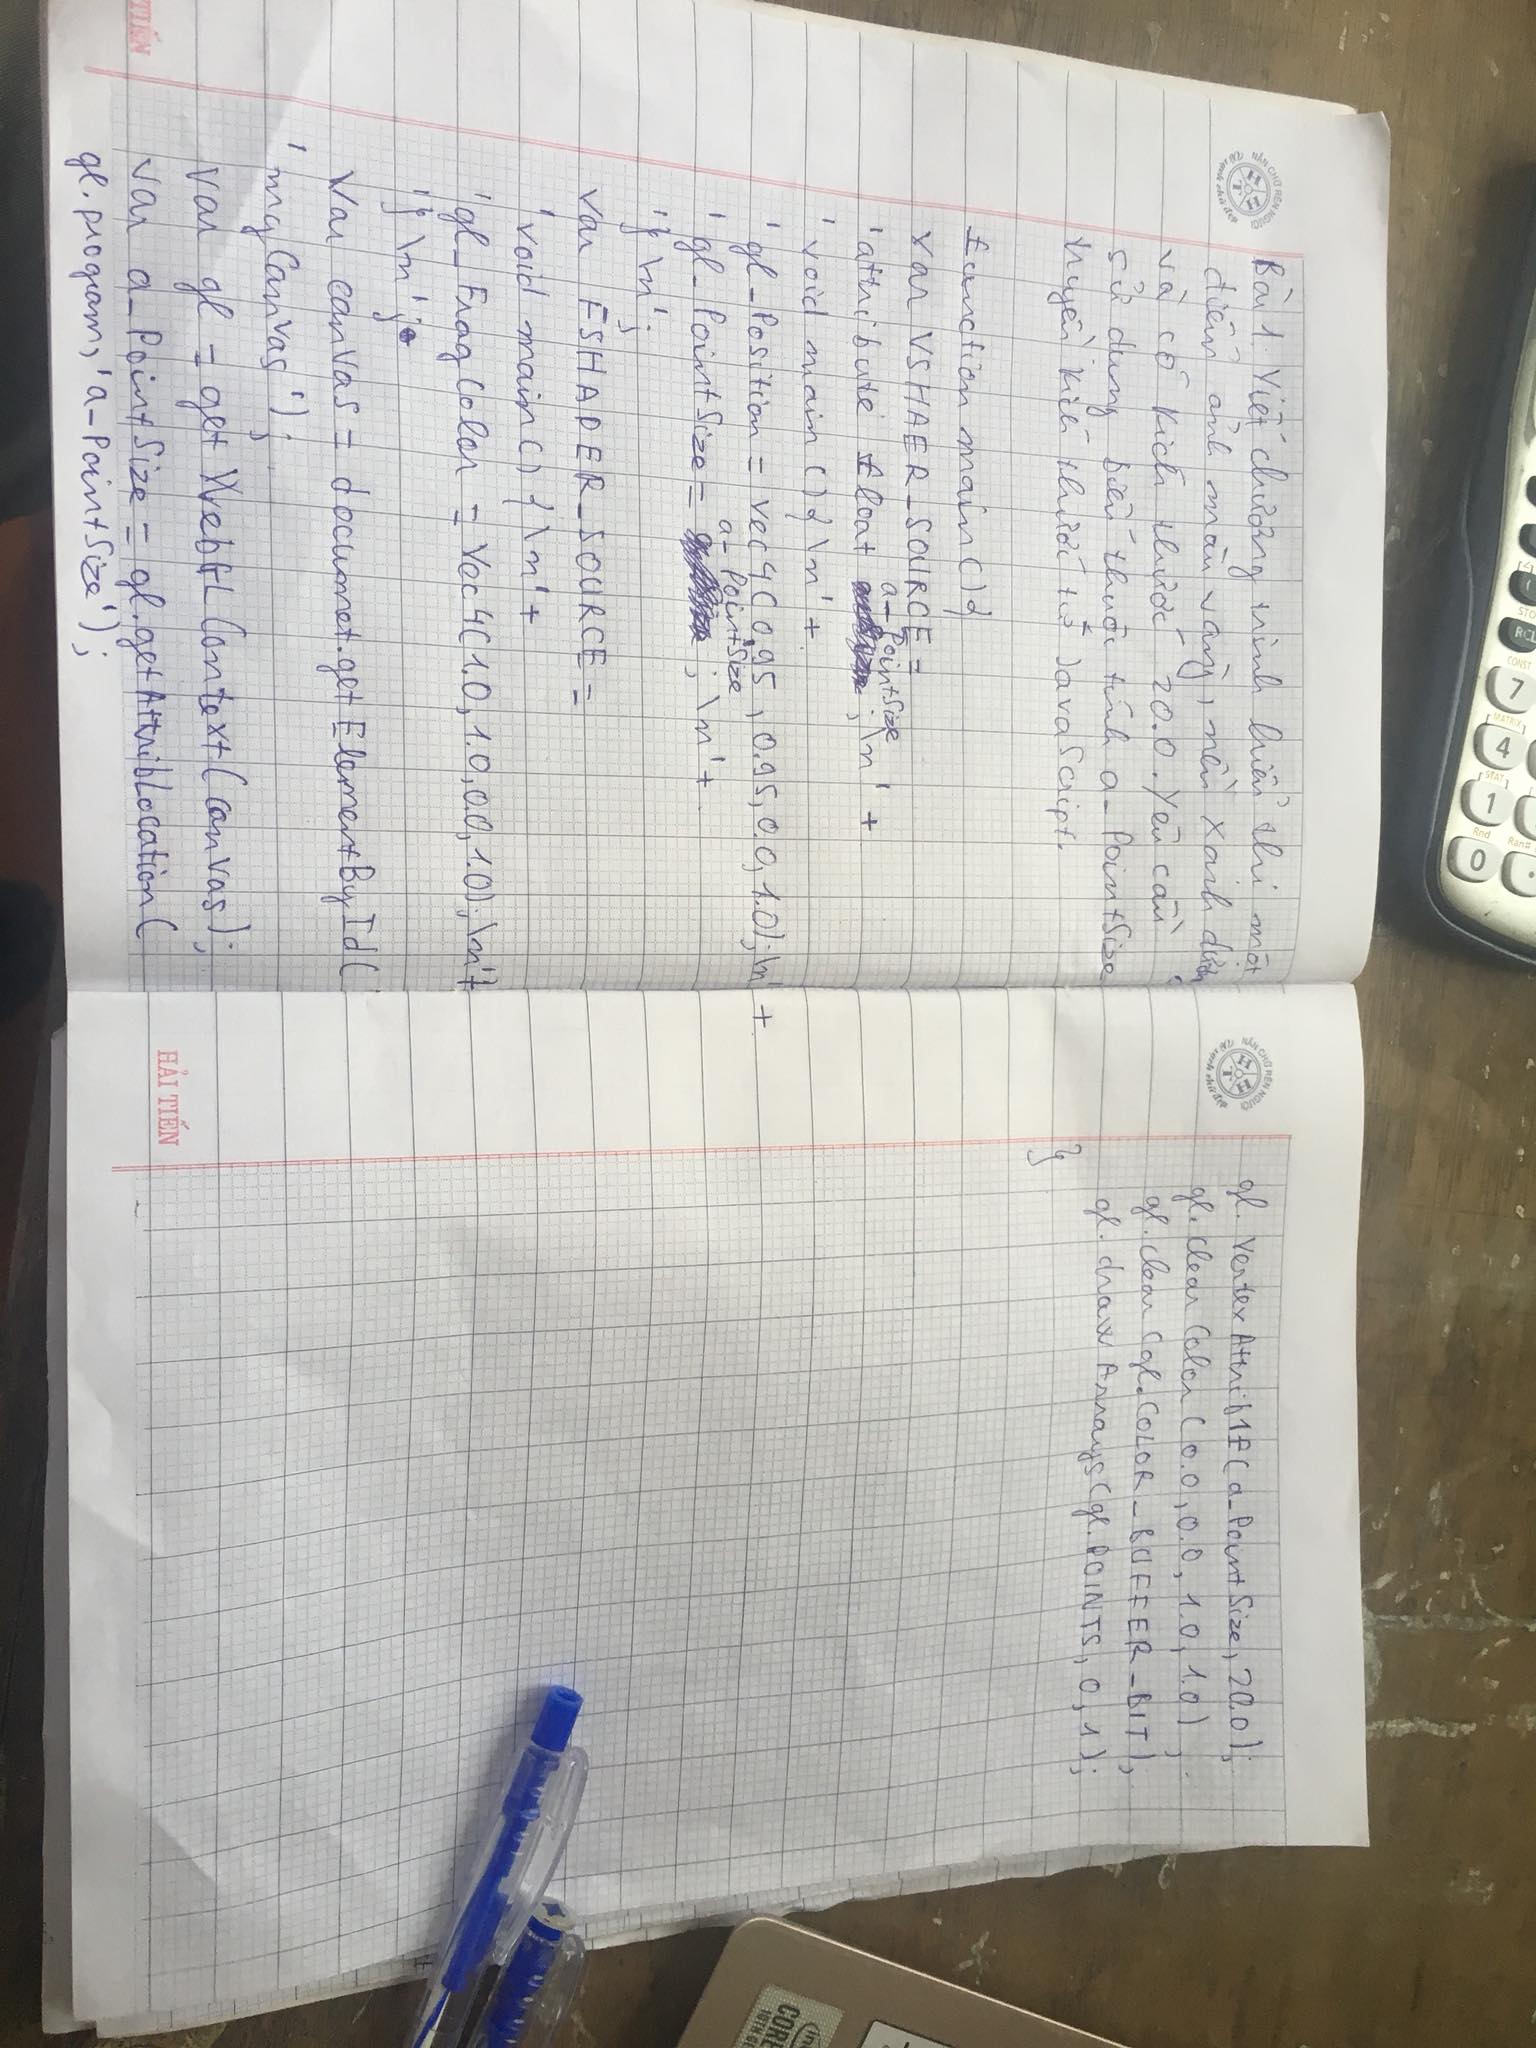 CONST
MATRIX
STAT
Rnd
Ran#
STO
RCL
7
4
1
0
NẮN CHỮ RÈN NGƯỜI
HHT
Vở sạch chữ đẹp
Bài 1. Viết chương trình hiển thi một
điểm ảnh màu vàng, nền xanh dương
và có kích thước 20.0. Yêu cầu
sử dụng biến thuộc tính a_PointSize
truyền kích thước từ JavaScript.
function main(){
var VSHAER_SOURCE =
'attribute float a_PointSize ;\n' +
'void main(){\n'+
'gl_Position = vec4(0.95, 0.95, 0.0, 1.0);\n' +
'gl_PointSize = a_PointSize ; \n'+
'}\n';
var FSHADER_SOURCE =
'void main(){\n'+
'gl_FragColor = vec4(1.0, 1.0, 0.0, 1.0);\n'+
'}\n';
var canvas = documet.getElementById(
'myCanvas');
var gl = getWebGLContext(canvas);
var a_PointSize = gl.getAttribLocation(
gl.program, 'a_PointSize');
TIẾN
NẮN CHỮ RÈN NGƯỜI
HHT
Vở sạch chữ đẹp
gl.vertexAttrib1f(a_PointSize, 20.0);
gl.clearColor(0.0, 0.0, 1.0, 1.0);
gl.clear(gl.COLOR_BUFFER_BIT);
gl.drawArrays(gl.POINTS, 0, 1);
}
HẢI TIẾN
CORE
10TH GE